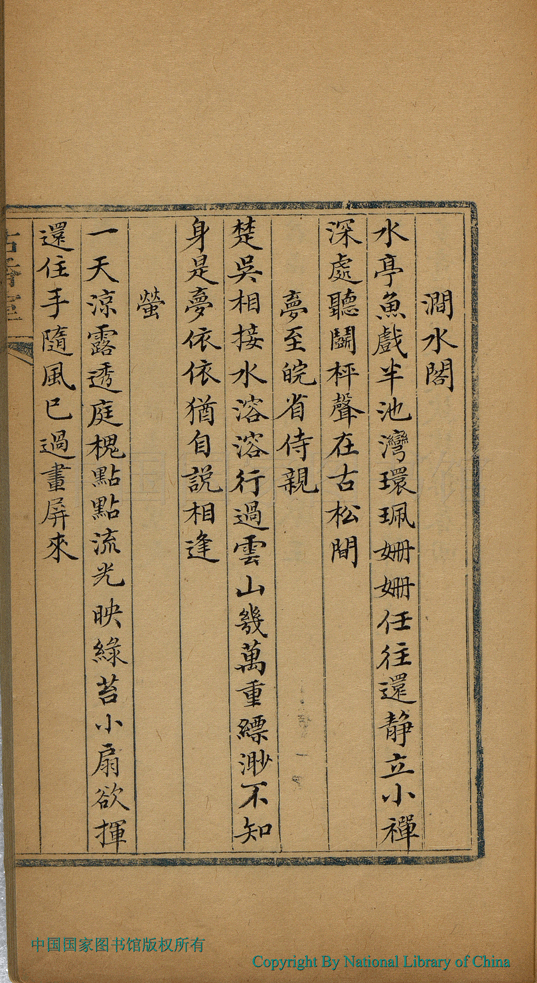 澗水閣
水亭魚戲半池灣環珮姍姍任往還靜立小禪
深處聽鬭枰聲在古松間
夢至皖省侍親
楚吳相接水溶溶行過雲山幾萬重縹渺不知
身是夢依依猶自說相逢
螢
一天涼露透庭槐點點流光映綠苔小扇欲揮
還住手隨風已過畫屏來
中国国家图书馆版权所有
Copyright By National Library of China